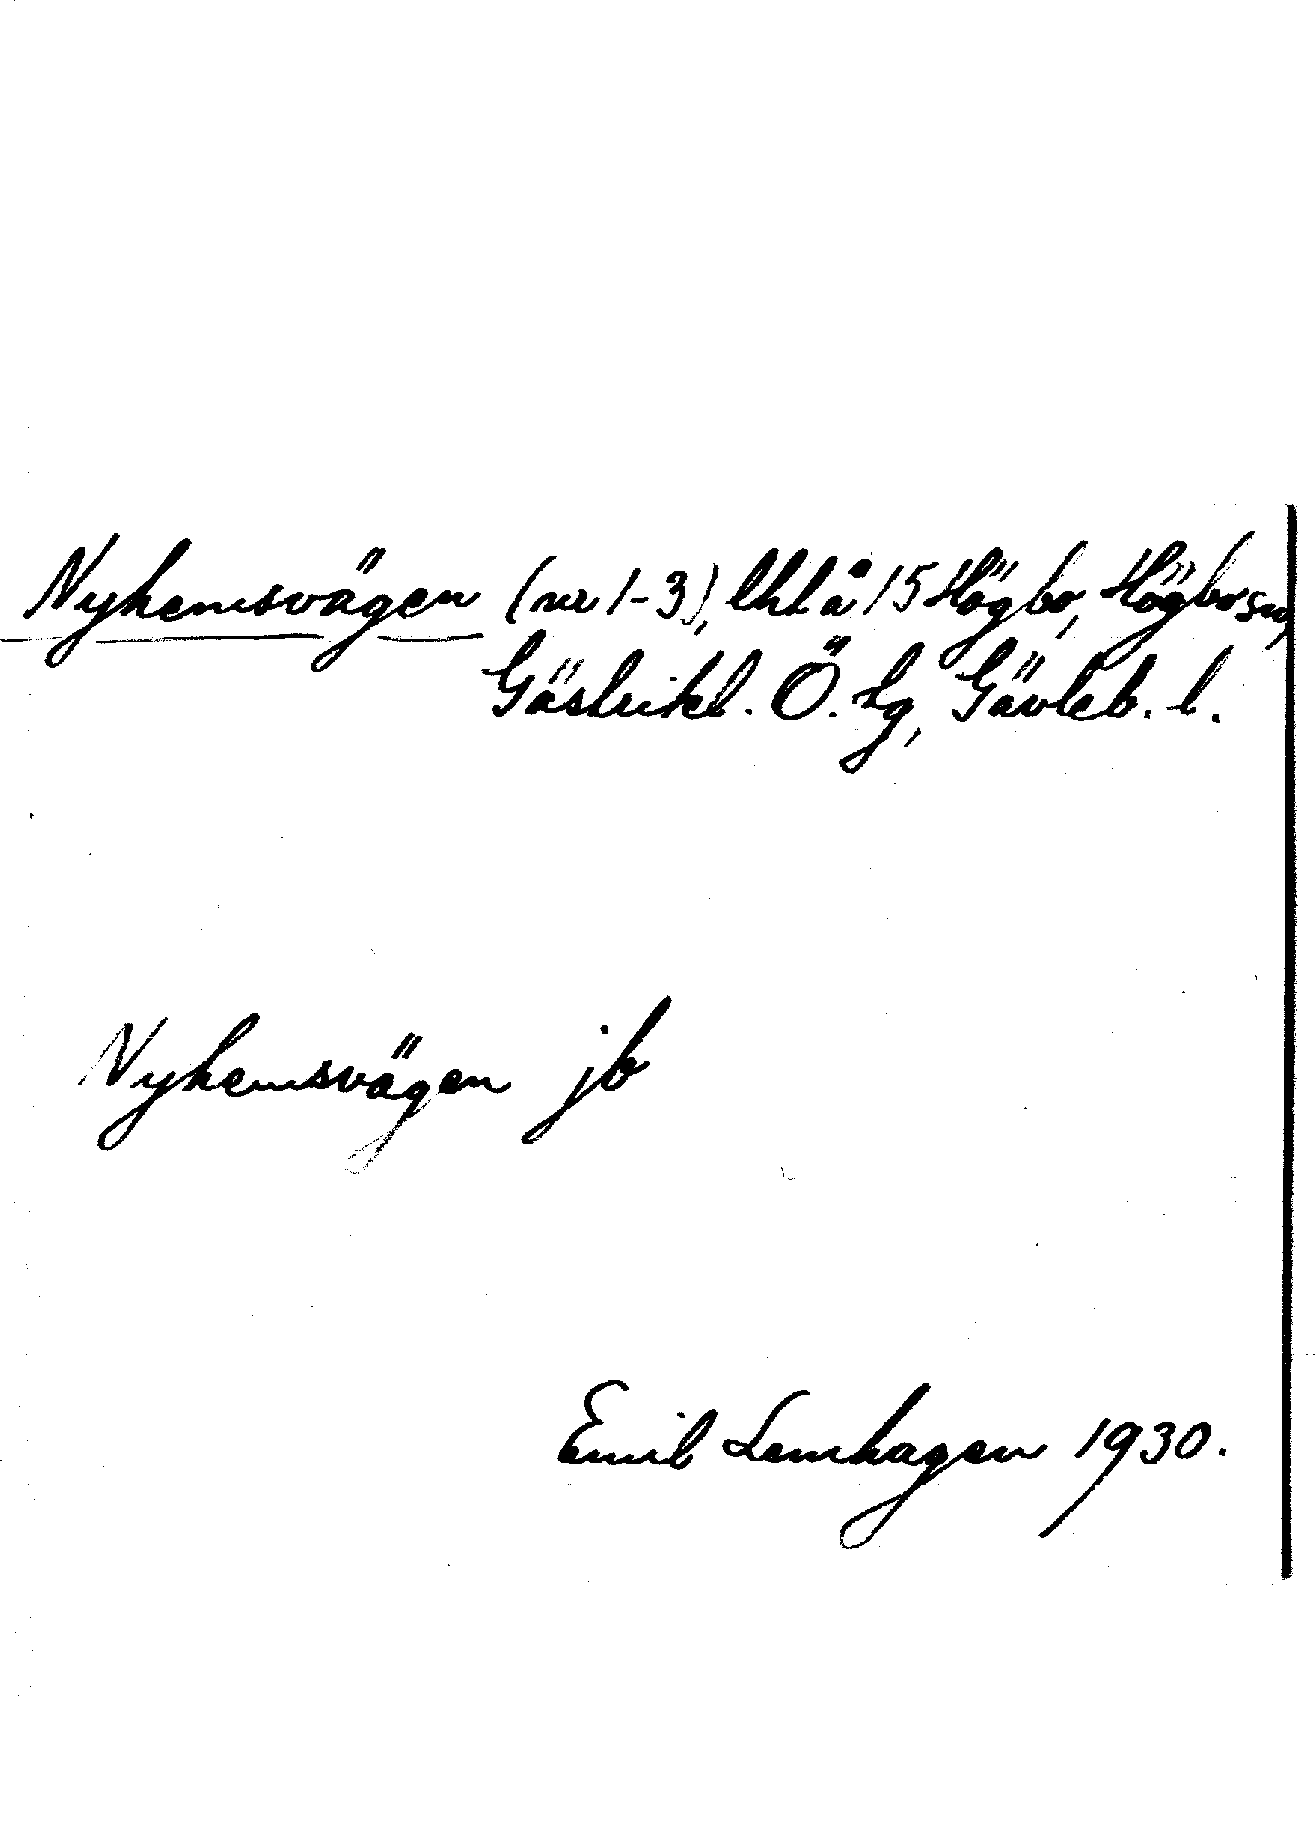 Nyhemsvägen (nr 1-3), lht å 15 Högbo, Högbo sn,
Gästrikl. Ö. tg, Gävleb. l.
Nyhemsvägen jb
Emil Lemhagen 1930.